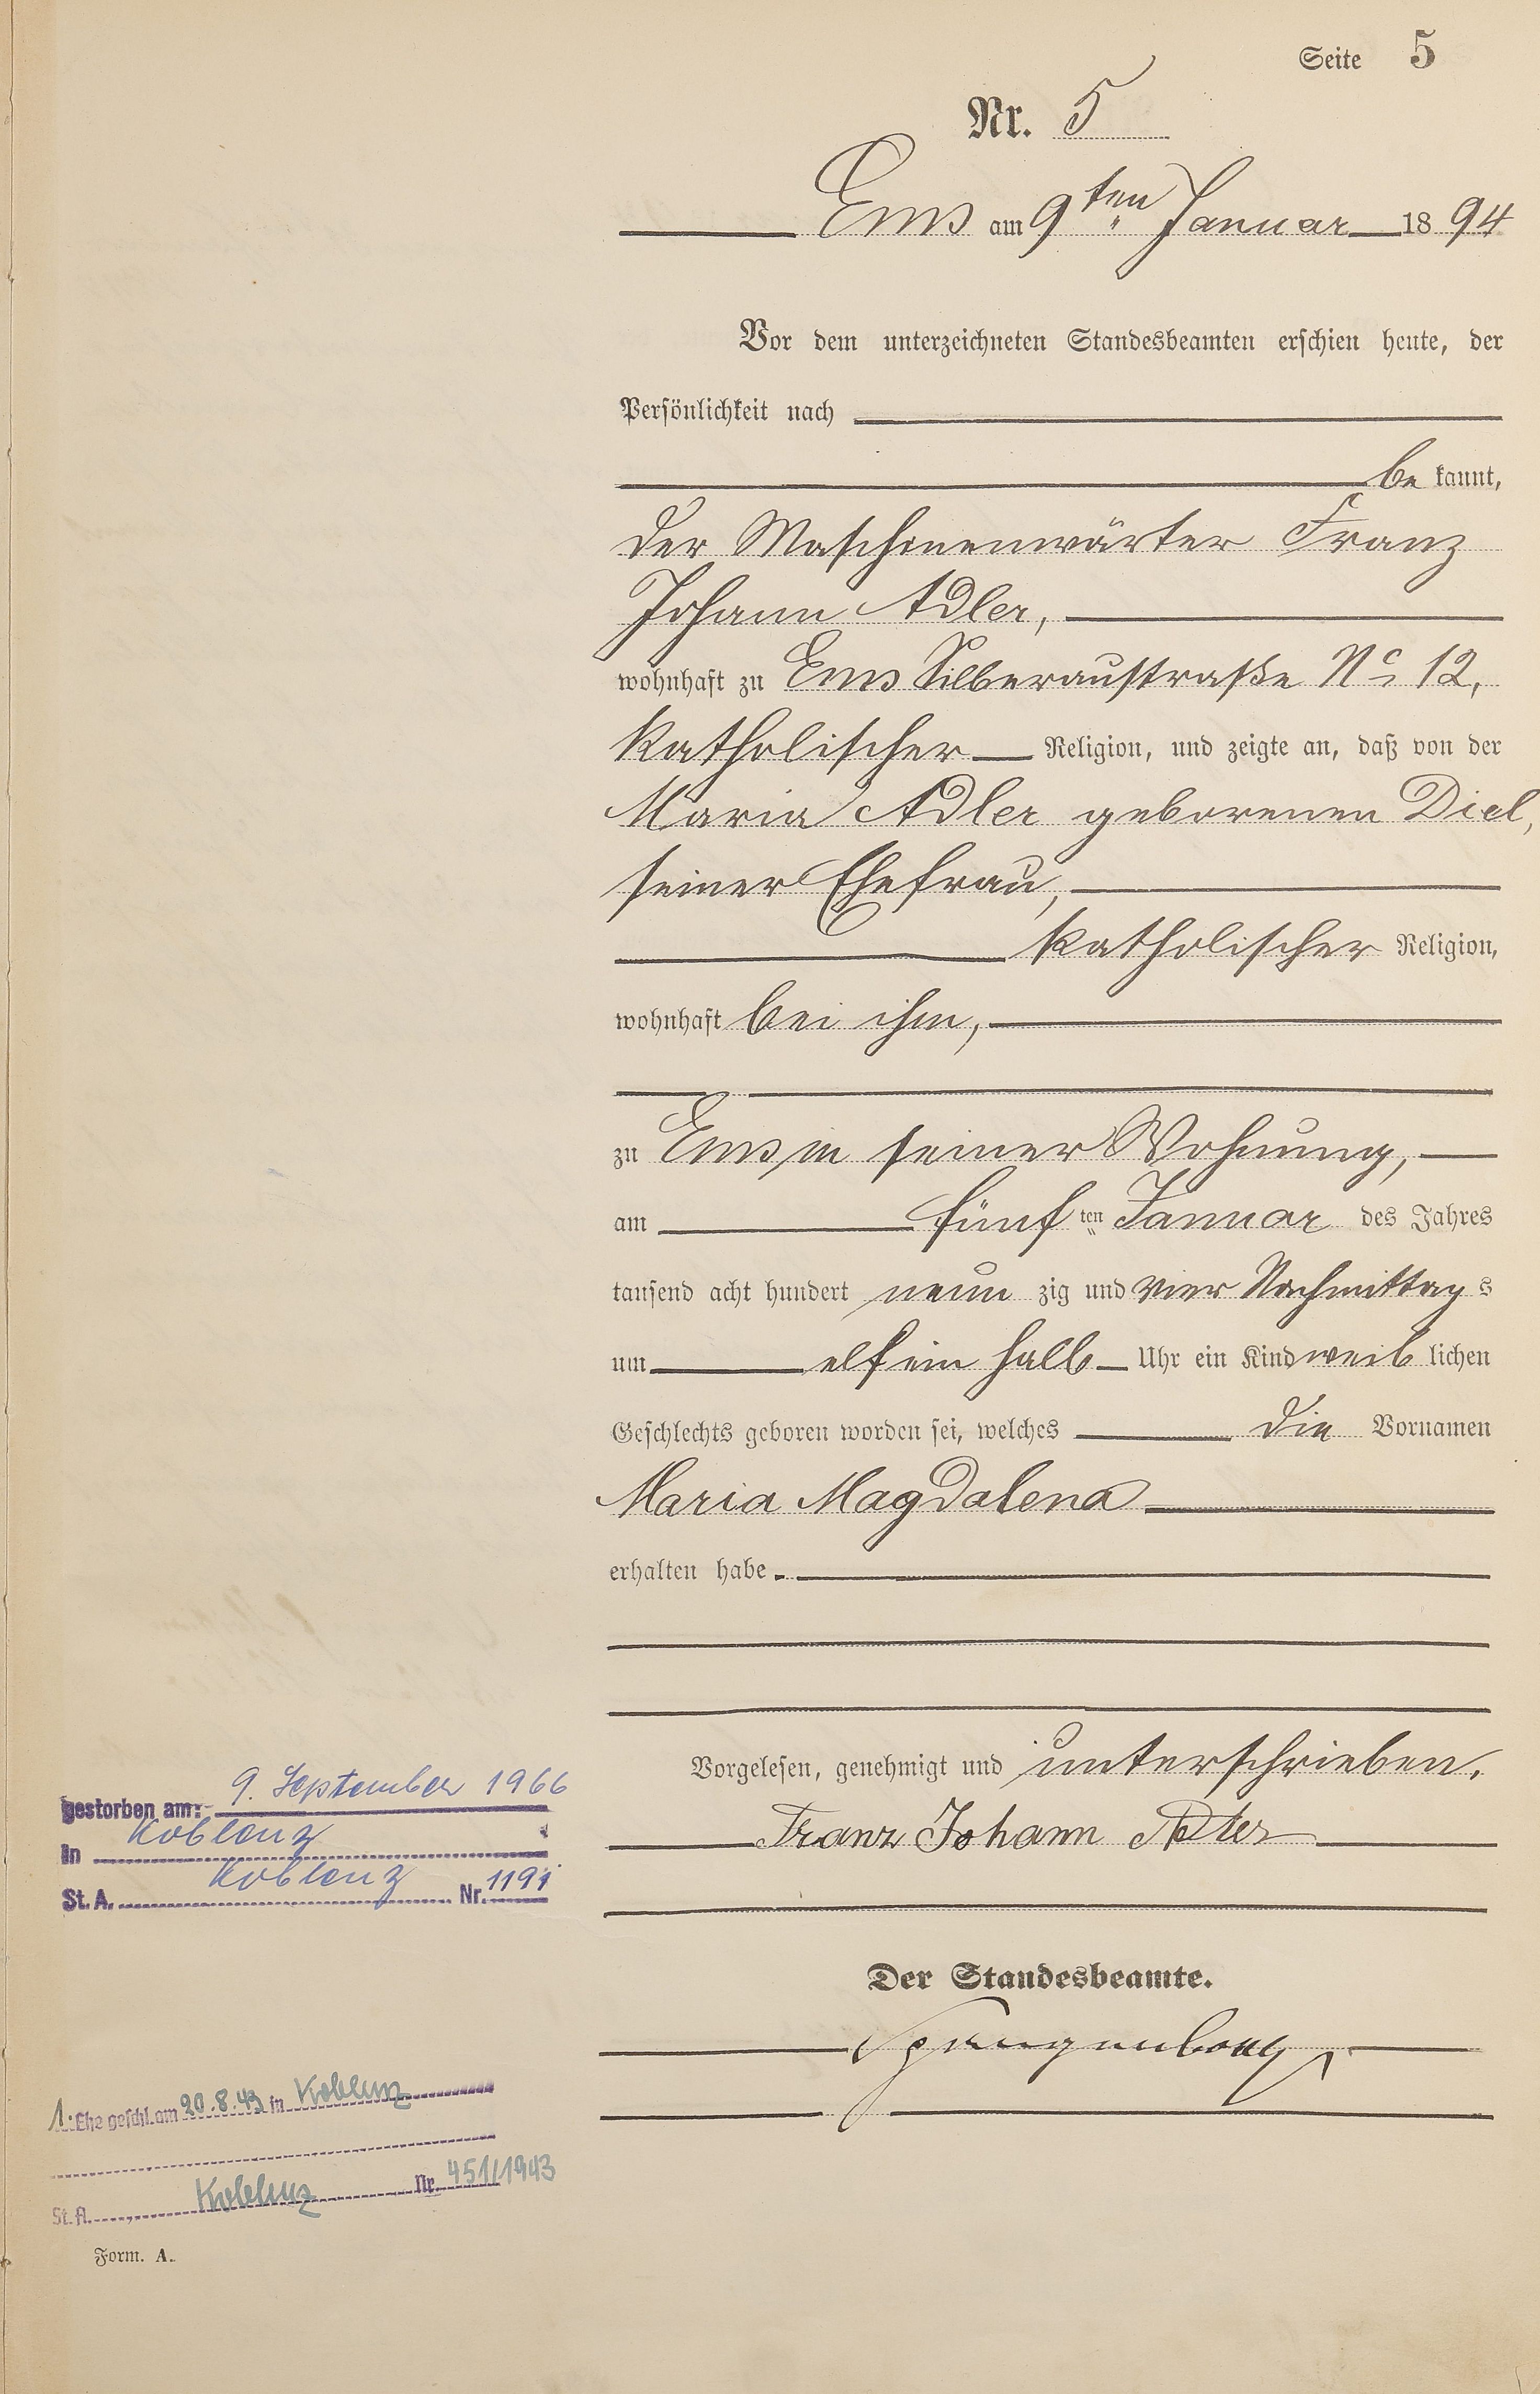 Seite 5
Nr. 5
Ems am 9ten Januar 1894
Vor dem unterzeichneten Standesbeamten erschien heute, der
Persönlichkeit nach
bekannt,
der Maschinenwärter Franz
Johann Adler,
wohnhaft zu Ems Silberaustraße No 12,
katholischer Religion, und zeigte an, daß von der
Maria Adler geborenen Diel,
seiner Ehefrau,
katholischer Religion,
wohnhaft bei ihm,
zu Ems in seiner Wohnung,
am fünften Januar des Jahres
tausend acht hundert neunzig und vier Nachmittags
um elf ein halb Uhr ein Kind weiblichen
Geschlechts geboren worden sei, welches die Vornamen
Maria Magdalena
erhalten habe.
Vorgelesen, genehmigt und unterschrieben.
Franz Johann Adler
Der Standesbeamte.
Spangenberg
gestorben am: 9. September 1966
in Koblenz
St. A. Koblenz Nr. 1191
1. Ehe geschl. am 20.8.43 in Koblenz
St. A. Koblenz Nr. 451/1943
Form. A.